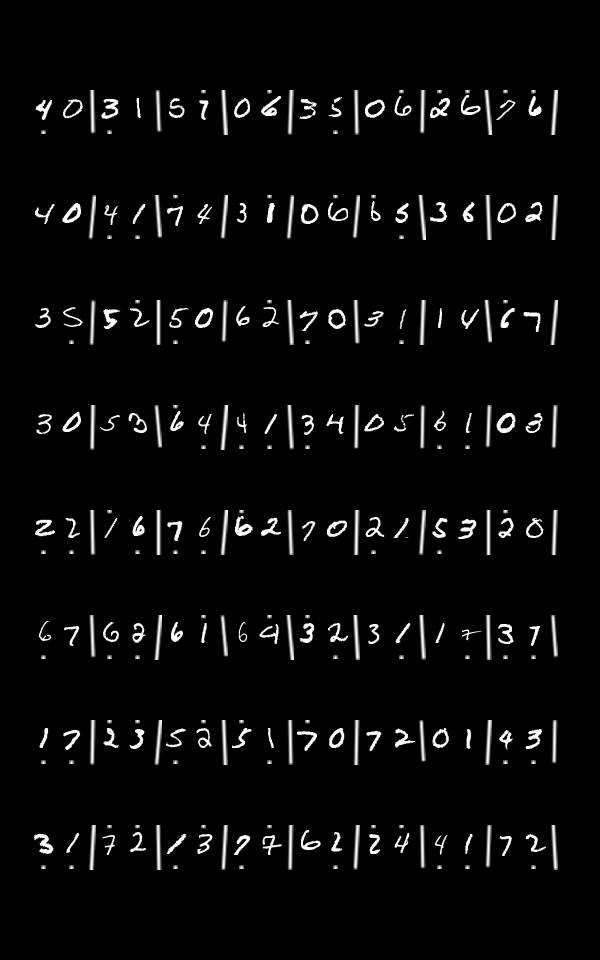 4 0 | 3 1 | 5 7 | 0 6 | 3 5 | 0 6 | 2 6 | 7 6 |
4 0 | 4 1 | 7 4 | 3 1 | 0 6 | 6 5 | 3 6 | 0 2 |
3 5 | 5 2 | 5 0 | 6 2 | 7 0 | 3 1 | 1 4 | 6 7 |
3 0 | 5 3 | 6 4 | 4 1 | 3 4 | 0 5 | 6 1 | 0 3 |
2 2 | 1 6 | 7 6 | 6 2 | 7 0 | 2 1 | 5 3 | 2 0 |
6 7 | 6 2 | 6 1 | 6 4 | 3 2 | 3 1 | 1 7 | 3 7 |
1 7 | 2 3 | 5 2 | 5 1 | 7 0 | 7 2 | 0 1 | 4 3 |
3 1 | 7 2 | 1 3 | 7 7 | 6 2 | 2 4 | 4 1 | 7 2 |